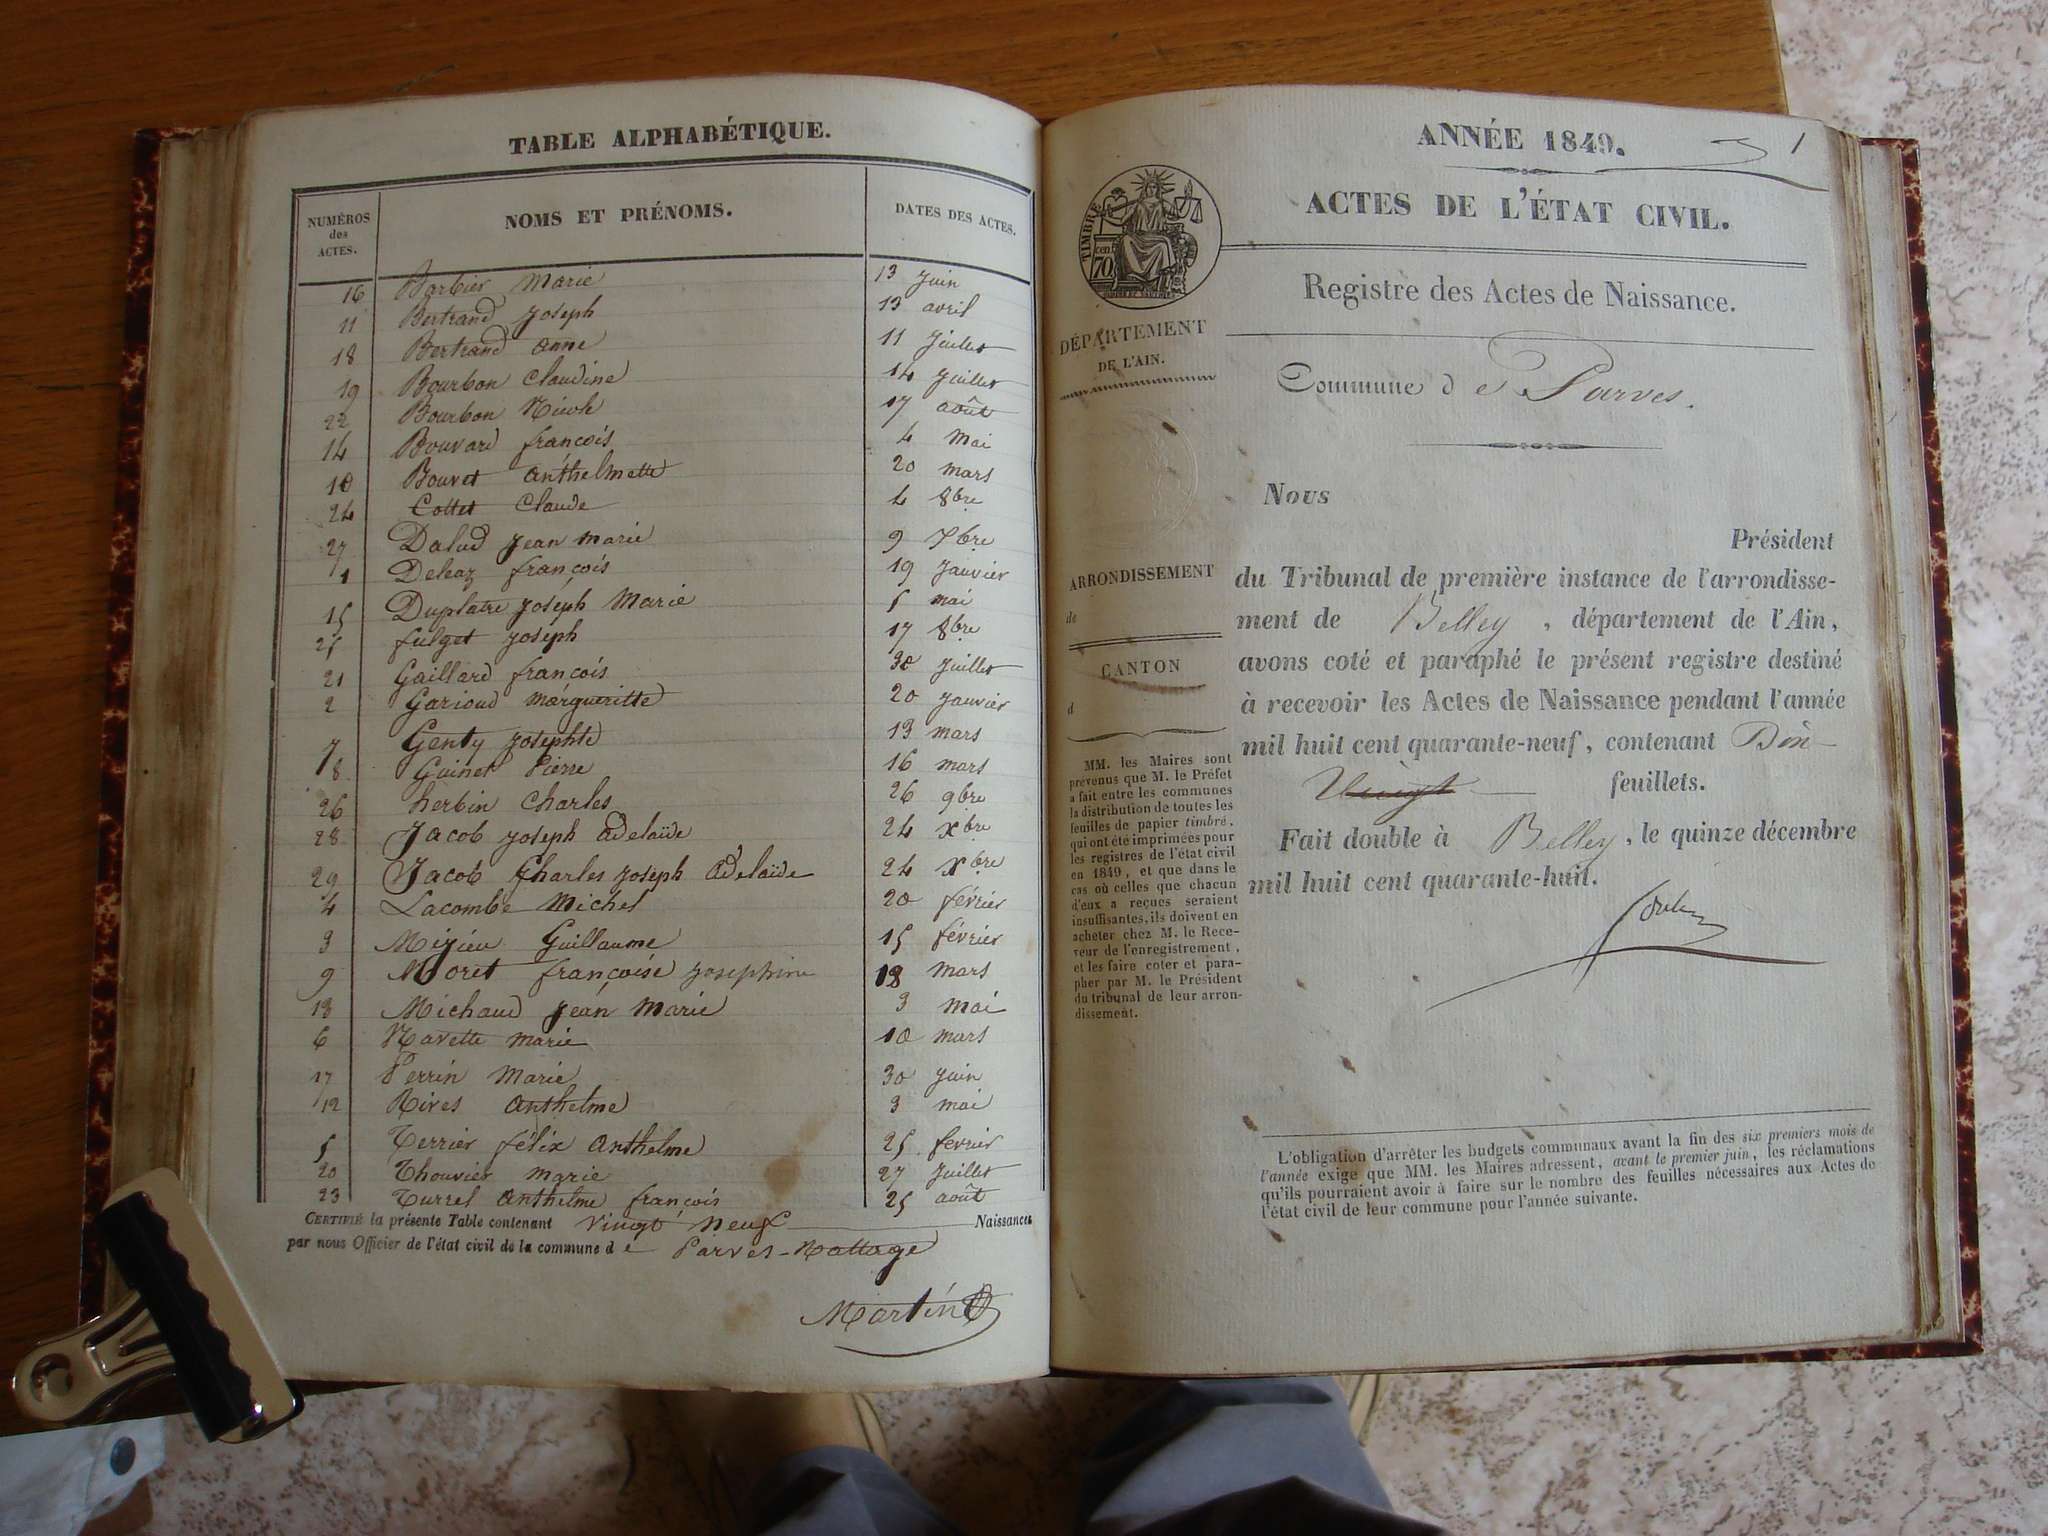 TABLE ALPHABÉTIQUE.
NUMÉROS des ACTES. NOMS ET PRÉNOMS. DATES DES ACTES.
16 Barbier Marie 13 Juin
11 Bertrand Joseph 13 avril
18 Bertrand anne 11 Juillet
19 Bourbon Claudine 14 Juillet
22 Bourbon 17 août
14 Bouvard françois 4 Mai
10 Bouvet Anthelmette 20 mars
24 Cottet Claude 4 8bre
27 Dalud Jean Marie 9 Xbre
1 Deleaz françois 19 Janvier
15 Duplatre Joseph Marie 5 mai
25 fulget Joseph 17 8bre
21 Gaillard françois 30 Juillet
2 Garioud Margueritte 20 Janvier
7 Genty Josephte 13 mars
8 Guinet Pierre 16 mars
26 herbin Charles 26 9bre
28 Jacob Joseph Adelaïde 24 Xbre
29 Jacob Charles Joseph Adelaïde 24 Xbre
4 Lacombe Michel 20 février
3 Guillaume 15 février
9 Moret françoise Josephine 18 mars
13 Michaud Jean Marie 3 Mai
6 Navette Marie 10 mars
17 Perrin Marie 30 Juin
12 Rives Anthelme 3 mai
5 Terrier félix Anthelme 25 fevrier
20 Thouvier Marie 27 Juillet
23 Turrel Anthelme françois 25 août
CERTIFIÉ la présente Table contenant Vingt Neuf Naissances
par nous Officier de l'état civil de la commune d e Parves-Nattage
Martin
ANNÉE 1849. 1
ACTES DE L'ÉTAT CIVIL.
TIMBRE
cen. 70
Registre des Actes de Naissance.
DÉPARTEMENT
DE L'AIN.
Commune d e Parves.
Nous
Président
du Tribunal de première instance de l'arrondisse-
ment de Belley, département de l'Ain,
avons coté et paraphé le présent registre destiné
à recevoir les Actes de Naissance pendant l'année
mil huit cent quarante-neuf, contenant Dix
Vingt feuillets.
Fait double à Belley, le quinze décembre
mil huit cent quarante-huit.
ARRONDISSEMENT
de
CANTON
d
MM. les Maires sont
prévenus que M. le Préfet
a fait entre les communes
la distribution de toutes les
feuilles de papier timbré,
qui ont été imprimées pour
les registres de l'état civil
en 1849, et que dans le
cas où celles que chacun
d'eux a reçues seraient
insuffisantes, ils doivent en
acheter chez M. le Rece-
veur de l'enregistrement,
et les faire coter et para-
pher par M. le Président
du tribunal de leur arron-
dissement.
L'obligation d'arrêter les budgets communaux avant la fin des six premiers mois de
l'année exige que MM. les Maires adressent, avant le premier juin, les réclamations
qu'ils pourraient avoir à faire sur le nombre des feuilles nécessaires aux Actes de
l'état civil de leur commune pour l'année suivante.